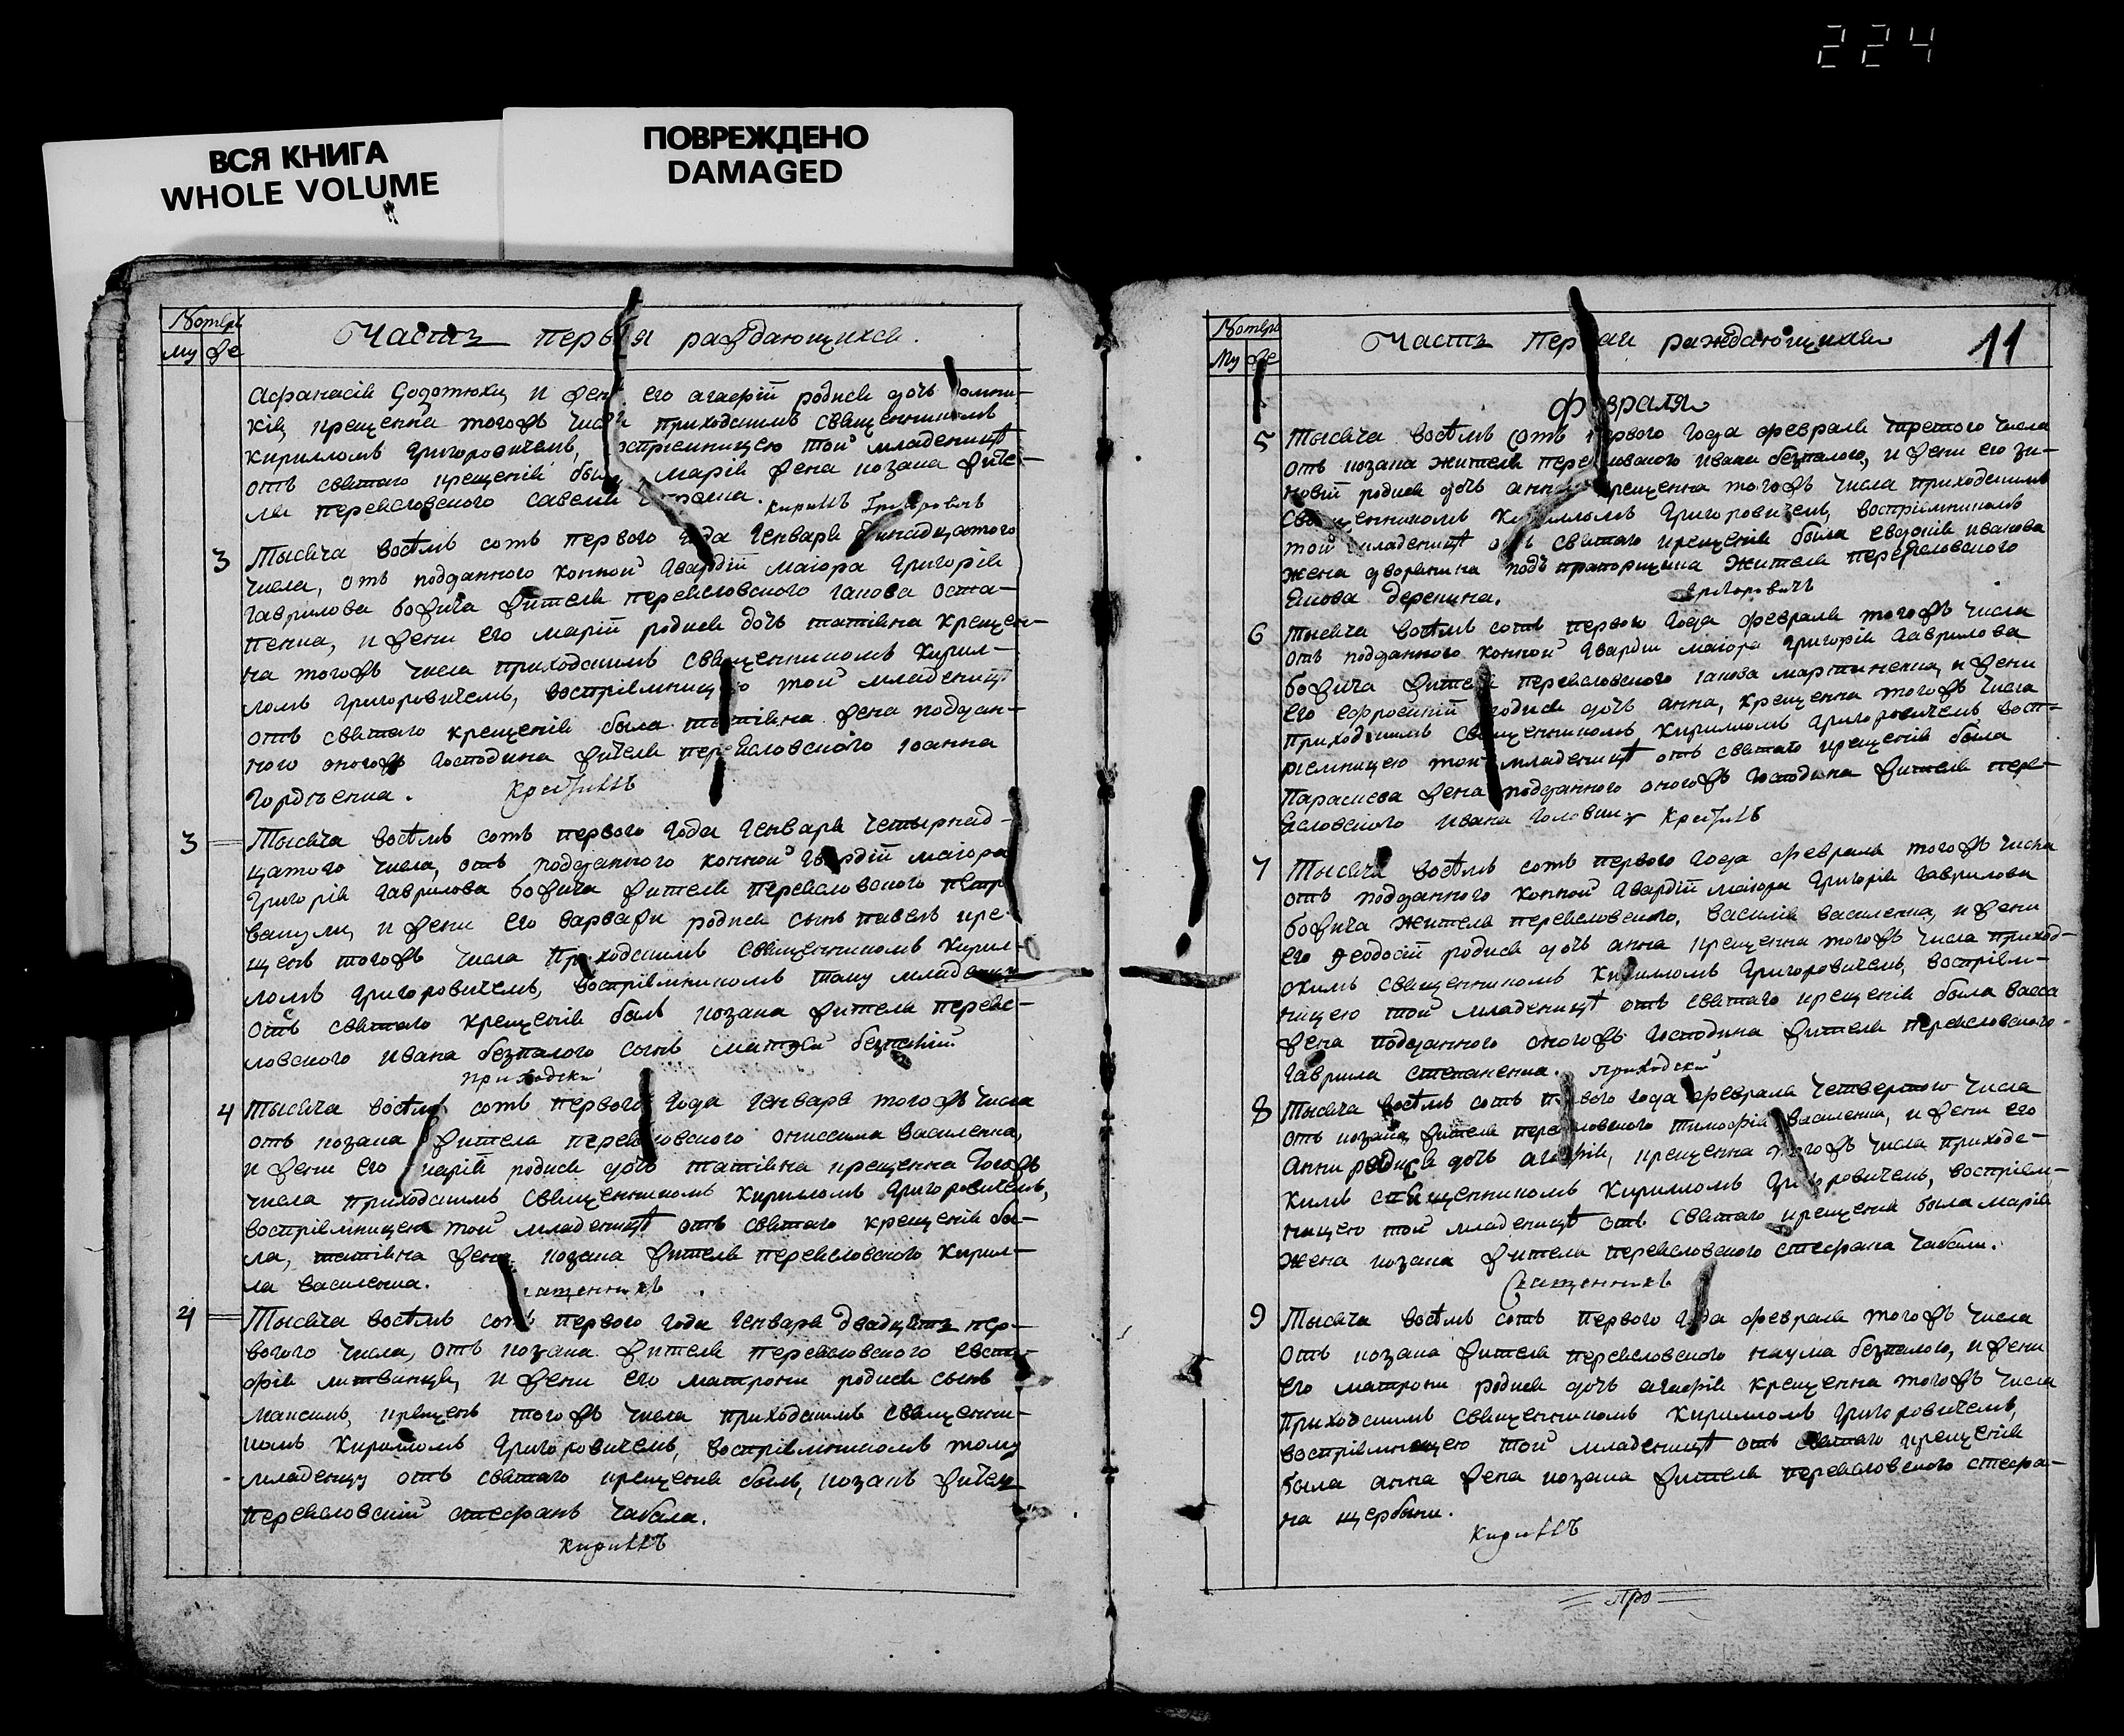 224
ВСЯ КНИГА
WHOLE VOLUME
ПОВРЕЖДЕНО
DAMAGED
Му же
Часть первая раждающихся.
кирилломъ григоровичемъ,
отъ святаго крещенія марія жена козака жите-
ля переясловского Кириллъ Григоровичъ
3 Тысяча восѣмъ сотъ первого года генваря
числа, отъ подданного конной гвардіи маіора григорія
гаврилова божича жителя переясловского іакова оста-
пенка, и жени его маріи родися дочь татіяна крещен-
на того жъ числа приходскимъ священникомъ кирил-
ломъ григоровичемъ, воспріемницею той младеницѣ
отъ святаго крещенія была татіяна жена поддан-
ного оного жъ господина жителя переясловского іоанна
3 Тысяча восѣмъ сотъ первого года генваря четырнад-
цатого числа, отъ подданного конной гвардіи маіора
григорія гаврилова божича жителя переясловского петра
и жени его варвари родися сынъ павелъ кре-
щенъ того жъ числа приходскимъ священникомъ кирил-
ломъ григоровичемъ, воспріемникомъ тому младенцу
отъ святаго крещенія былъ козака жителя переяс-
ловского ивана безпалого сынъ матфей безпалій
приходскій
4 Тысяча восѣмъ сотъ первого года генваря того жъ числа
отъ козака жителя переясловского онисима василенка,
и жени его маріи родися дочь татіяна крещенна того жъ
числа приходскимъ священникомъ кирилломъ григоровичемъ,
воспріемницею той младеницѣ отъ святаго крещенія бы-
ла, татіяна жена козака жителя переясловского кирил-
ла василенка.
4 Тысяча восѣмъ сотъ первого года генваря двадцать пер-
вого числа, отъ козака жителя переясловского евста-
фія литвинця, и жени его матрони родися сынъ
максимъ, крещенъ того жъ числа приходскимъ священни-
комъ кирилломъ григоровичемъ, воспріемникомъ тому
младенцу отъ святаго крещенія былъ, козакъ житель
переясловскій стефанъ чабала.
Кириллъ
Му же
Часть первая раждающихся 11
февраля
5 Тысяча восѣмъ сотъ первого года февраля третого числа
отъ козака жителя переясловского ивана безпалого, и жени его зи-
новіи родися дочь анна крещенна того жъ числа приходскимъ
священникомъ кирилломъ григоровичемъ, воспріемникомъ
той младеницѣ отъ святаго крещенія была евдокія иванова
жена дворянина подъ прапорщика жителя переясловского
Григоровичъ
6 Тысяча восѣмъ сотъ первого года февраля того жъ числа
отъ подданного конной гвардіи маіора григорія гаврилова
божича жителя переясловского іакова мартиненка, и жени
его ефросиніи родися дочь анна, крещенна того жъ числа
приходскимъ священникомъ кирилломъ григоровичемъ восп-
ріемницею той младеницѣ отъ святаго крещенія была
параскева жена подданного оного жъ господина жителя пере-
ясловского ивана
7 Тысяча восѣмъ сотъ первого года февраля того жъ числа
отъ подданного конной гвардіи маіора григорія гаврилова
божича жителя переясловского, василія василенка, и жени
его феодосіи родися дочь анна крещенна того жъ числа приход-
скимъ священникомъ кирилломъ григоровичемъ, воспріем-
ницею той младеницѣ отъ святаго крещенія была васса
жена подданного оного жъ господина жителя переясловского
гаврила степаненка. приходскій
8 Тысяча восѣмъ сотъ первого года февраля четвертого числа
отъ козака жителя переясловского тимофія василенка, и жени его
анни родися дочь агафія, крещенна того жъ числа приходс-
кимъ священникомъ кирилломъ григоровичемъ, воспріем-
ницею той младеницѣ отъ святаго крещенія была марія
жена козака жителя переясловского стефана чабали.
Священникъ
9 Тысяча восѣмъ сотъ первого года февраля того жъ числа
отъ козака жителя переясловского наума безпалого, и жени
его матрони родися дочь агафія крещенна того жъ числа
приходскимъ священникомъ кирилломъ григоровичемъ,
воспріемницею той младеницѣ отъ святаго крещенія
была анна жена козака жителя переясловского стефа-
на щербини.
Кириллъ